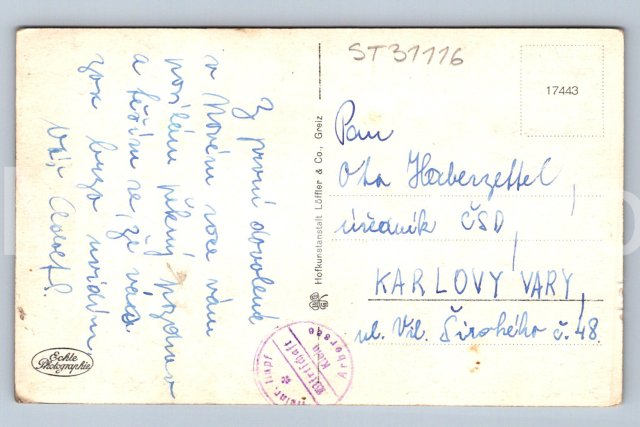 ST31116
17443
Z první dovolené
v Novém roce vám
posílám pěkný pozdrav
a těším se, že vás
zas brzo uvidím
Váš
Hofkunstanstalt Löffler & Co., Greiz
Pan
Ota Haberzettel,
úředník ČSD,
KARLOVY VARY,
ul. Vil. Širokého č. 48.
Echte
Photographie
Wirtschaft